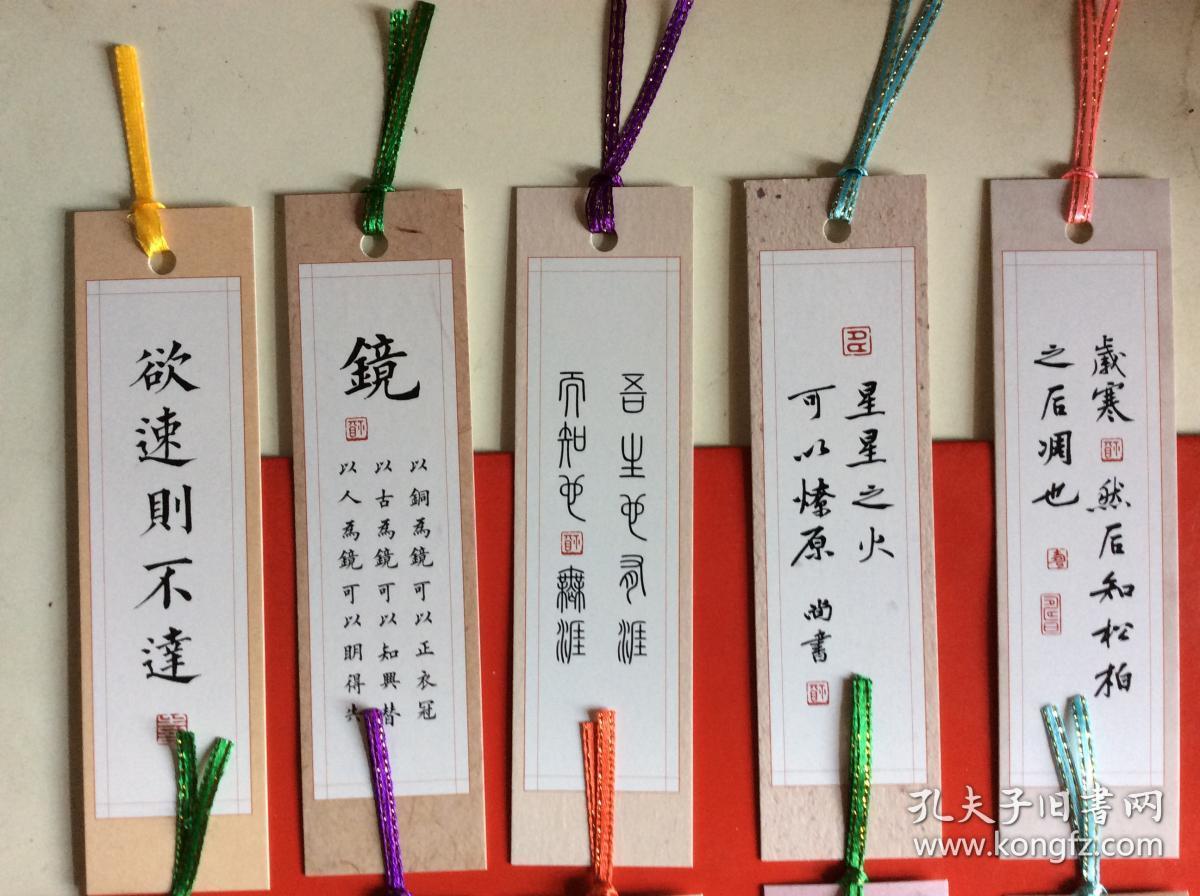 欲速則不達
鏡
以銅為鏡可以正衣冠
以古為鏡可以知興替
以人為鏡可以明得失
吾生也有涯
而知也無涯
星星之火
可以燎原
尚書
歲寒然后知松柏
之后凋也
孔夫子旧书网
www.kongfz.com